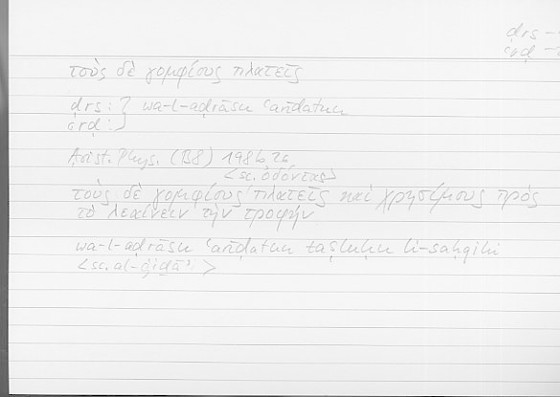 ḍrs →
ʿrḍ →
τοὺς δὲ γομφίους πλατεῖς
ḍrs : } wa-l-aḍrāsu ʿarīḍatun
ʿrḍ : }
Arist. Phys. (B8) 198b26
<sc. ὀδόντας>
τοὺς δὲ γομφίους πλατεῖς καὶ χρησίμους πρὸς
τὸ λεαίνειν τὴν τροφήν
wa-l-aḍrāsu ʿarīḍatun taṣluḥu li-saḥqihi
<sc. al-ġiḏāʾ>